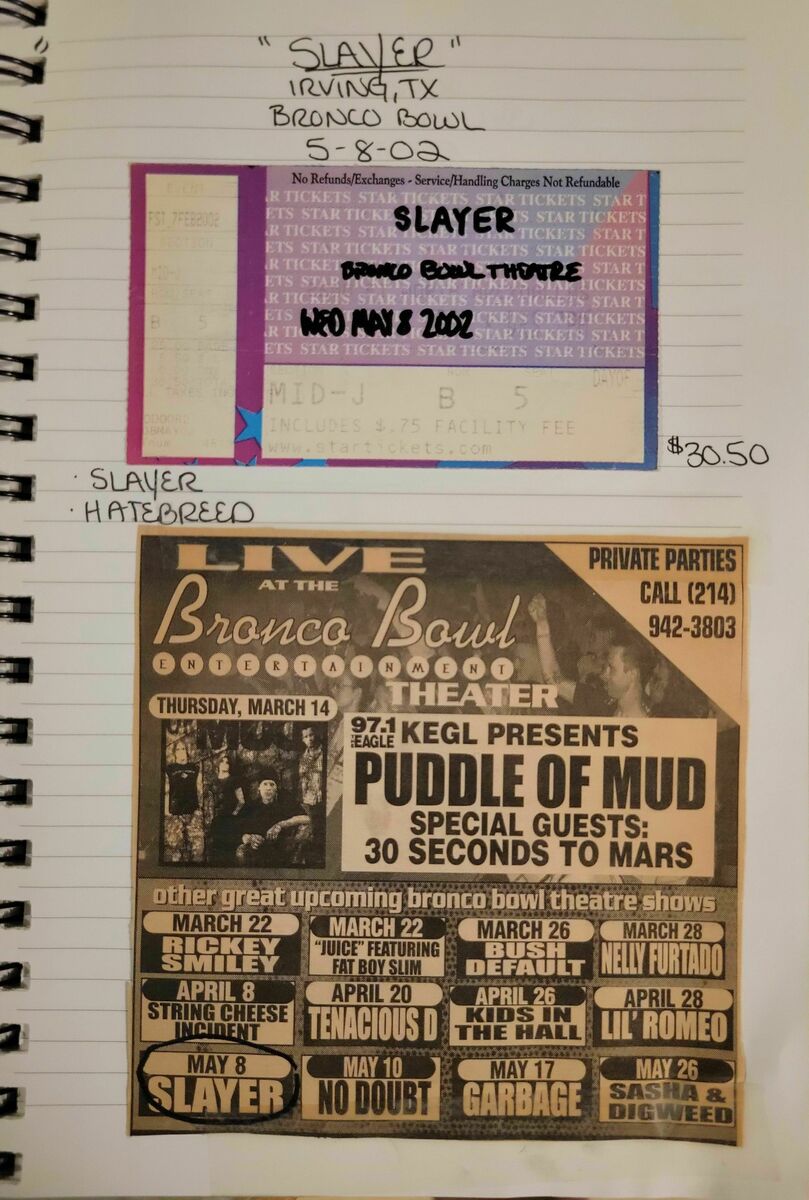 "SLAYER"
IRVING, TX
BRONCO BOWL
5-8-02
No Refunds/Exchanges - Service/Handling Charges Not Refundable
R TICKETS STAR TICKETS STAR TICKETS STAR T
SLAYER
BRONCO BOWL THEATRE
WED MAY 8 2002
ETS STAR TICKETS STAR TICKETS STAR TICKETS
EVENT
7FEB2002
B 5
MID-J B 5
INCLUDES $.75 FACILITY FEE
www.startickets.com
$30.50
· SLAYER
· HATEBREED
LIVE
AT THE
Bronco Bowl
ENTERTAINMENT
THEATER
PRIVATE PARTIES
CALL (214)
942-3803
THURSDAY, MARCH 14
97.1 EAGLE KEGL PRESENTS
PUDDLE OF MUD
SPECIAL GUESTS:
30 SECONDS TO MARS
other great upcoming bronco bowl theatre shows
MARCH 22
RICKEY
SMILEY
MARCH 22
"JUICE" FEATURING
FAT BOY SLIM
MARCH 26
BUSH
DEFAULT
MARCH 28
NELLY FURTADO
APRIL 8
STRING CHEESE
INCIDENT
APRIL 20
TENACIOUS D
APRIL 26
KIDS IN
THE HALL
APRIL 28
LIL' ROMEO
MAY 8
SLAYER
MAY 10
NO DOUBT
MAY 17
GARBAGE
MAY 26
SASHA &
DIGWEED